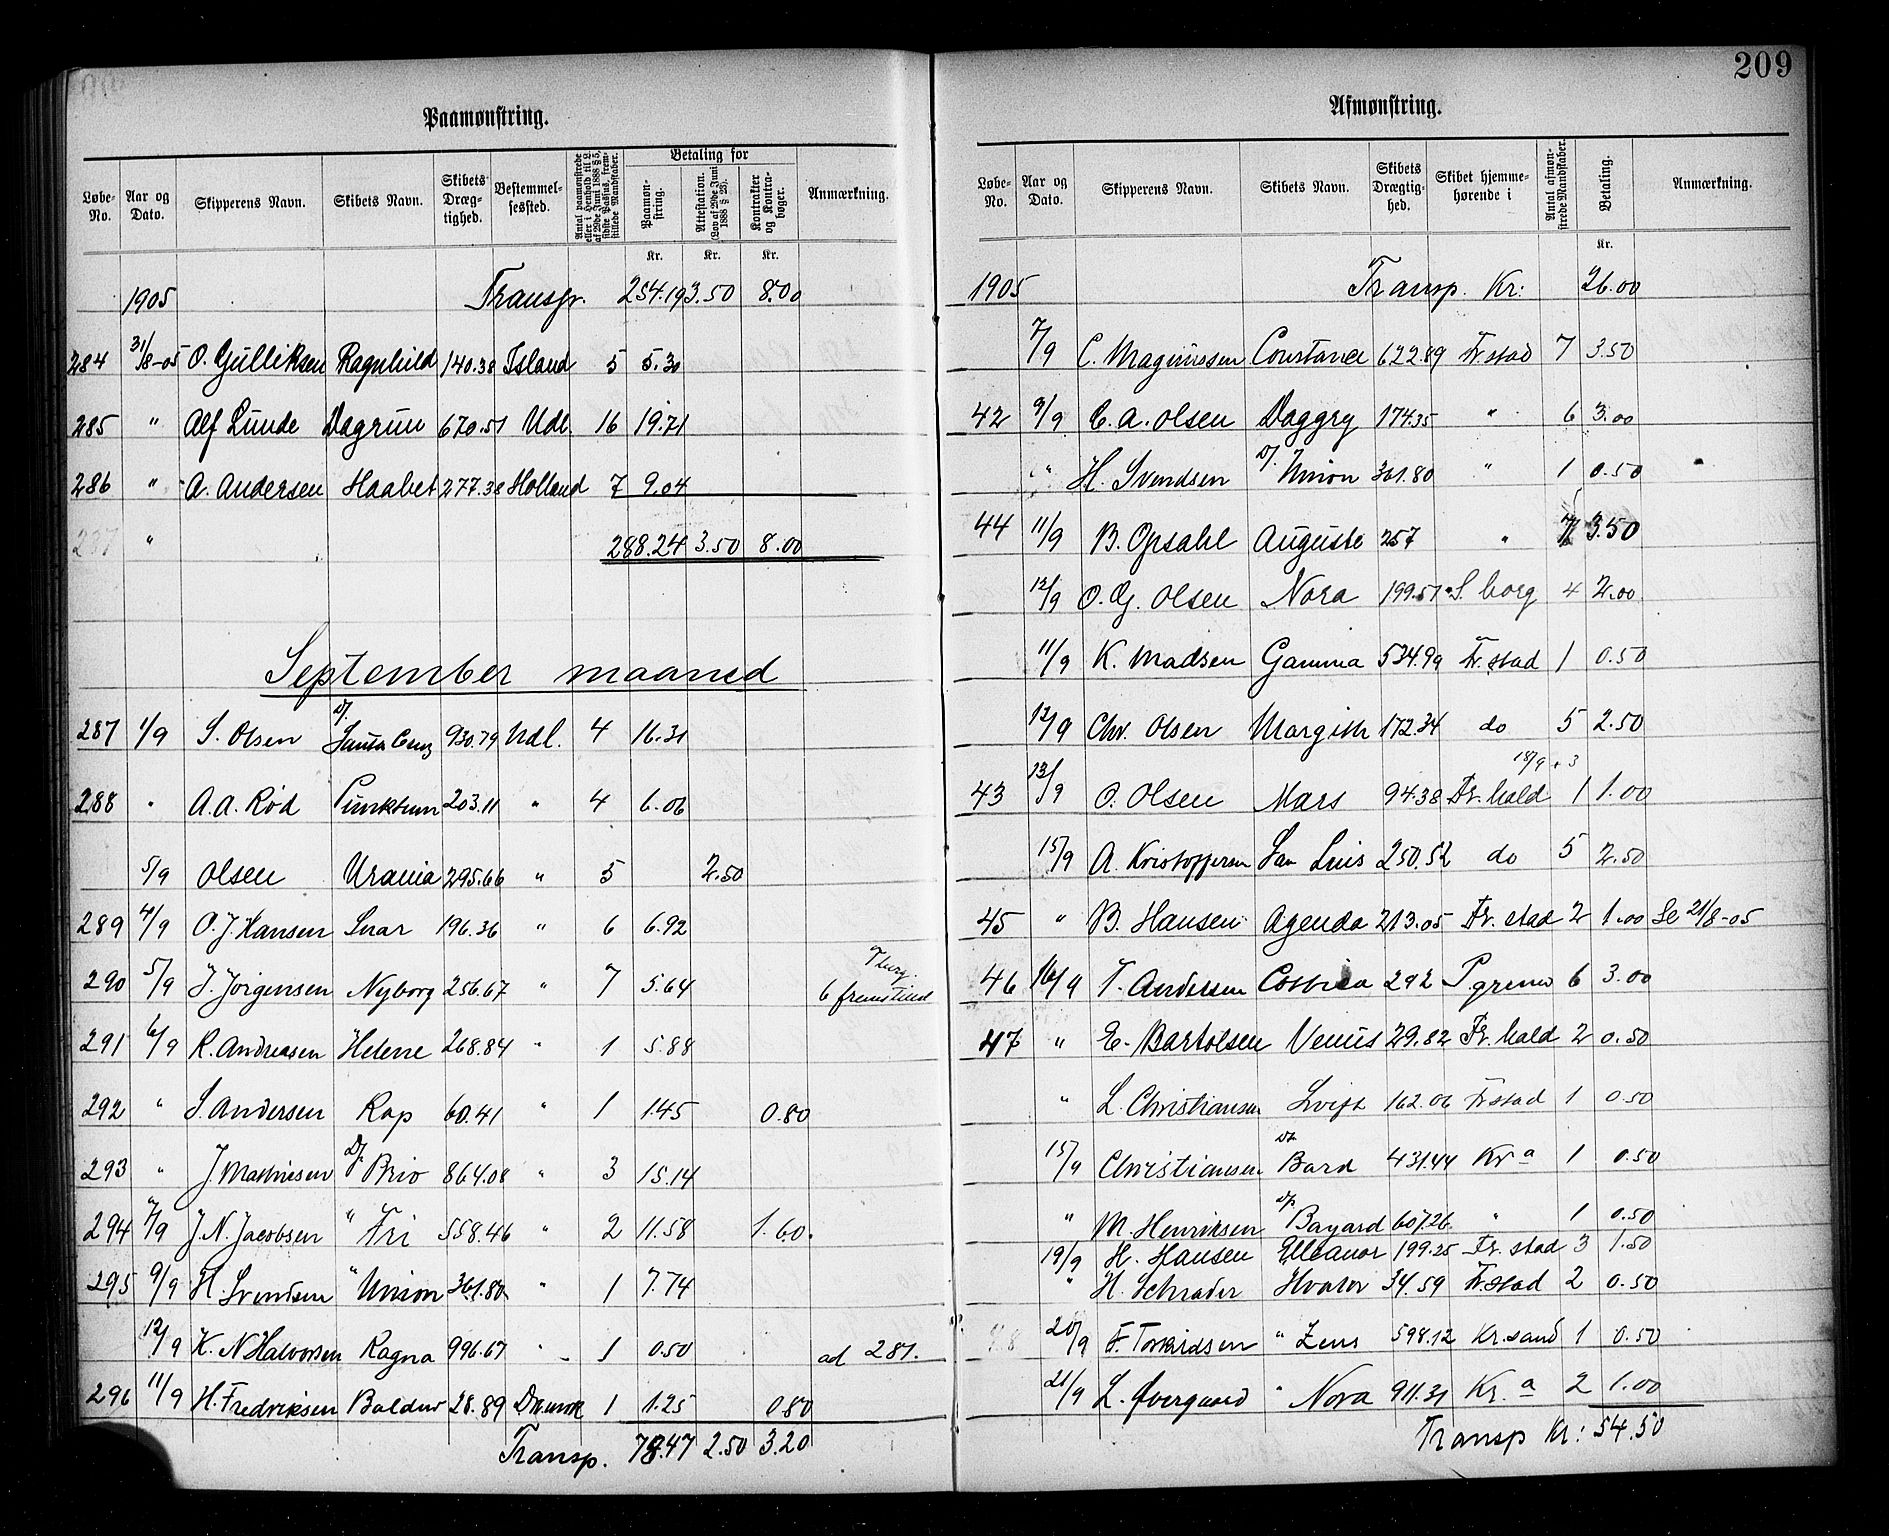 209
Paamønstring.
Løbe-No. Aar og Dato. Skipperens Navn. Skibets Navn. Skibets Drægtighed. Bestemmelsessted. Antal paamønstrede eller i Henhold til L. af 29de Juni 1888 § 5, sidste Passus, fremstillede Mandskaber. Betaling for Paamønstring. Attestation. (Lov af 29de Juni 1888 § 23). Kontrakter og Kontrabøger. Anmærkning.
Kr. Kr. Kr.
1905 Transp. 254.19 3.50 8.00
284 31/8-05 O. Gulliksen Ragnhild 140.38 Island 5 5.30
285 " Alf Lunde Dagrun 670.51 Udl. 16 19.71
286 " A. Andersen Haabet 277.38 Holland 7 9.04
287 " 288.24 3.50 8.00
September maaned
287 1/9 S. Olsen D/. Santa Cruz 930.79 Udl. 4 16.31
288 " A.A. Rød Punktum 203.11 " 4 6.06
5/9 Olsen Urania 295.66 " 5 2.50
289 4/9 O. J. Hansen Snar 196.36 " 6 6.92
290 5/9 J. Jørgensen Nyborg 256.67 " 7 5.64 6 fremstillet
291 6/9 R. Andreasen Helene 268.84 " 1 5.88
292 " S. Andersen Rap 60.41 " 1 1.45 0.80
293 " J. Mathisen D/. Brio 864.08 " 3 15.14
294 7/9 J. N. Jacobsen " Fri 558.46 " 2 11.58 1.60.
295 9/9 H. Svendsen " Union 361.80 " 1 7.74
12/9 K. N Halvorsen Ragna 996.67 " 1 0.50 ad 281.
296 11/9 H. Fredriksen Baldur 28.89 Danmark 1 1.25 0.80
Transp. 78.47 2.50 3.20
Afmønstring.
Løbe-No. Aar og Dato. Skipperens Navn. Skibets Navn. Skibets Drægtighed. Skibet hjemmehørende i Antal afmønstrede Mandskaber. Betaling. Anmærkning.
Kr.
1905 Transp. Kr: 26.00
7/9 C. Magnussen Constance 622.89 Fr.stad 7 3.50
42 9/9 C. A. Olsen Daggry 174.35 " 6 3.00
" H. Svendsen D/. Union 361.80 " 1 0.50
44 11/9 B. Opsahl Auguste 257 " 7 3.50
12/9 O. G. Olsen Nora 199.51 S.borg 4 2.00
11/9 K. Madsen Gamma 534.99 Fr.stad 1 0.50
12/9 Chr. Olsen Margith 172.34 do 5 2.50
18/9 + 3
43 13/9 O. Olsen Mars 94.38 Fr.hald 1 1.00
15/9 A. Kristoffersen San Luis 250.52 do 5 2.50
45 " B. Hansen Agenda 213.05 Fr.stad 2 1.00 Se 21/8-05
46 16/9 T. Andersen 292 P.grund 6 3.00
47 " E. Bartolsen Venus 29.82 Fr.hald 2 0.50
" L. Christiansen Svift 162.06 Fr.stad 1 0.50
15/9 Christiansen D/. Bard 431.44 Kr.a 1 0.50
" M. Henriksen D/. Bayard 607.26 " 1 0.50
19/9 H. Hansen Elleanor 199.25 Fr.stad 3 1.50
" H. Schrader Hvator 34.59 Fr.stad 2 0.50
48 20/9 F. Torkildsen " Zeus 598.12 Kr.sand 1 0.50
21/9 L. Øvergaard " Nora 911.31 Kr.a 2 1.00
Transp Kr: 54.50